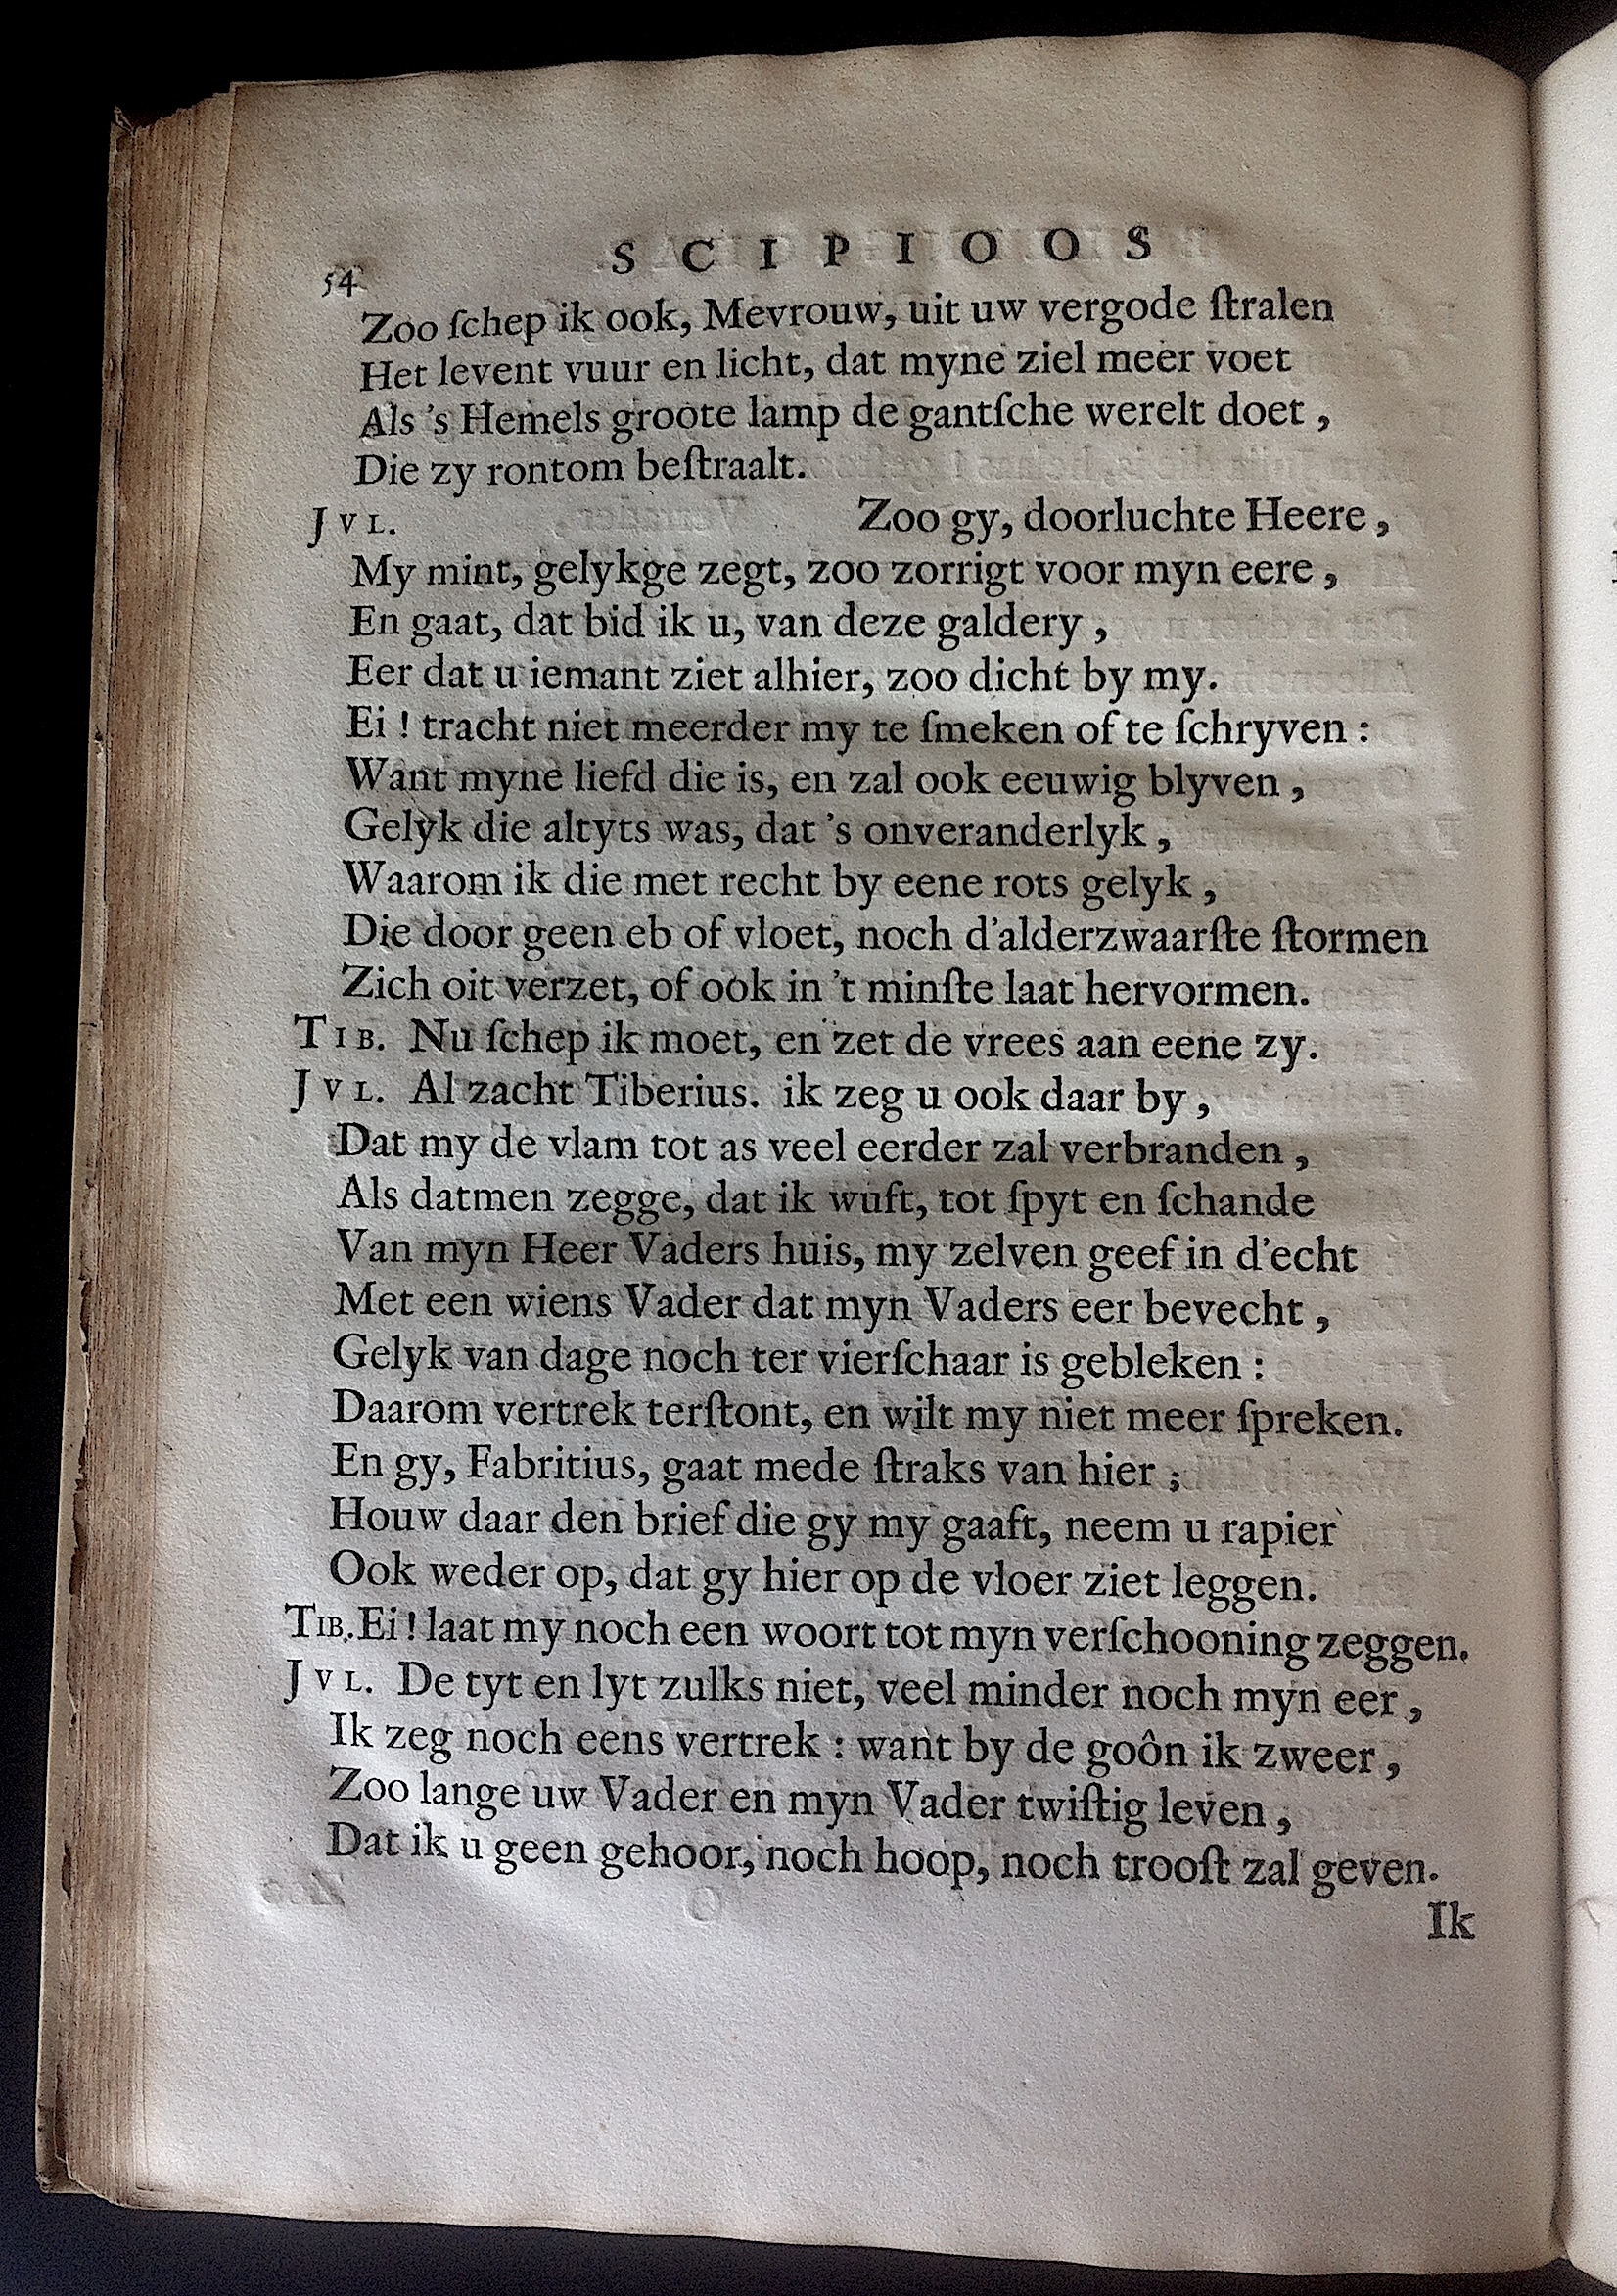 54 SCIPIOOS
Zoo ſchep ik ook, Mevrouw, uit uw vergode ſtralen
Het levent vuur en licht, dat myne ziel meer voet
Als 's Hemels groote lamp de gantſche werelt doet,
Die zy rontom beſtraalt.
JVL. Zoo gy, doorluchte Heere,
My mint, gelykge zegt, zoo zorrigt voor myn eere,
En gaat, dat bid ik u, van deze galdery,
Eer dat u iemant ziet alhier, zoo dicht by my.
Ei! tracht niet meerder my te ſmeken of te ſchryven:
Want myne liefd die is, en zal ook eeuwig blyven,
Gelyk die altyts was, dat 's onveranderlyk,
Waarom ik die met recht by eene rots gelyk,
Die door geen eb of vloet, noch d'alderzwaarſte ſtormen
Zich oit verzet, of ook in 't minſte laat hervormen.
TIB. Nu ſchep ik moet, en zet de vrees aan eene zy.
JVL. Al zacht Tiberius. ik zeg u ook daar by,
Dat my de vlam tot as veel eerder zal verbranden,
Als datmen zegge, dat ik wuft, tot ſpyt en ſchande
Van myn Heer Vaders huis, my zelven geef in d'echt
Met een wiens Vader dat myn Vaders eer bevecht,
Gelyk van dage noch ter vierſchaar is gebleken:
Daarom vertrek terſtont, en wilt my niet meer ſpreken.
En gy, Fabritius, gaat mede ſtraks van hier;
Houw daar den brief die gy my gaaft, neem u rapier
Ook weder op, dat gy hier op de vloer ziet leggen.
TIB. Ei! laat my noch een woort tot myn verſchooning zeggen.
JVL. De tyt en lyt zulks niet, veel minder noch myn eer,
Ik zeg noch eens vertrek: want by de goôn ik zweer,
Zoo lange uw Vader en myn Vader twiſtig leven,
Dat ik u geen gehoor, noch hoop, noch trooſt zal geven.
Ik